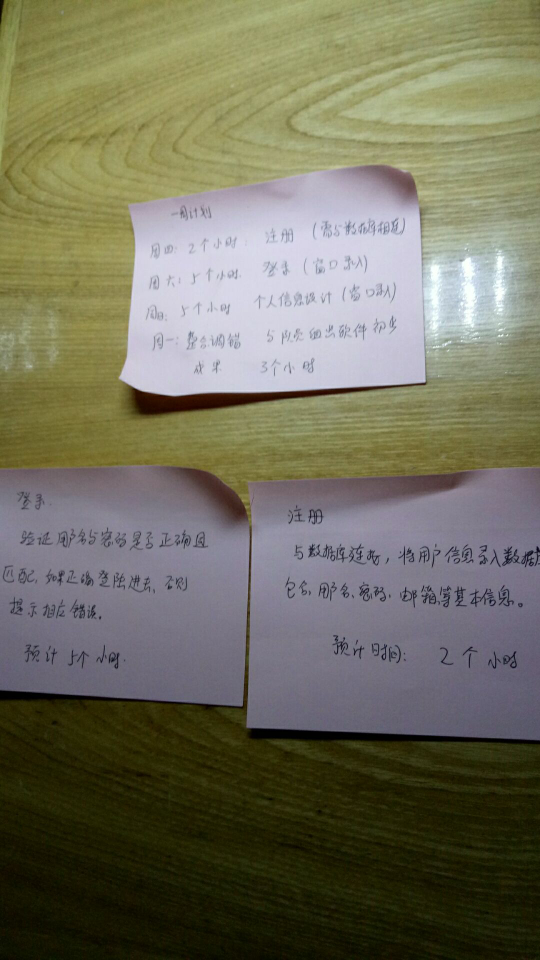 一周计划
周四: 2个小时: 注册 (需与数据库相连)
周六: 5个小时 登录 (窗口录入)
周日: 5个小时 个人信息设计 (窗口录入)
周一: 整合调错 与队员做出软件初步
成果 3个小时
登录.
验证用户名与密码是否正确且
匹配, 如果正确登陆进去, 否则
提示相应错误。
预计 5个小时.
注册
与数据库连接, 将用户信息录入数据库
包含用户名、密码、邮箱等基本信息。
预计时间: 2个小时